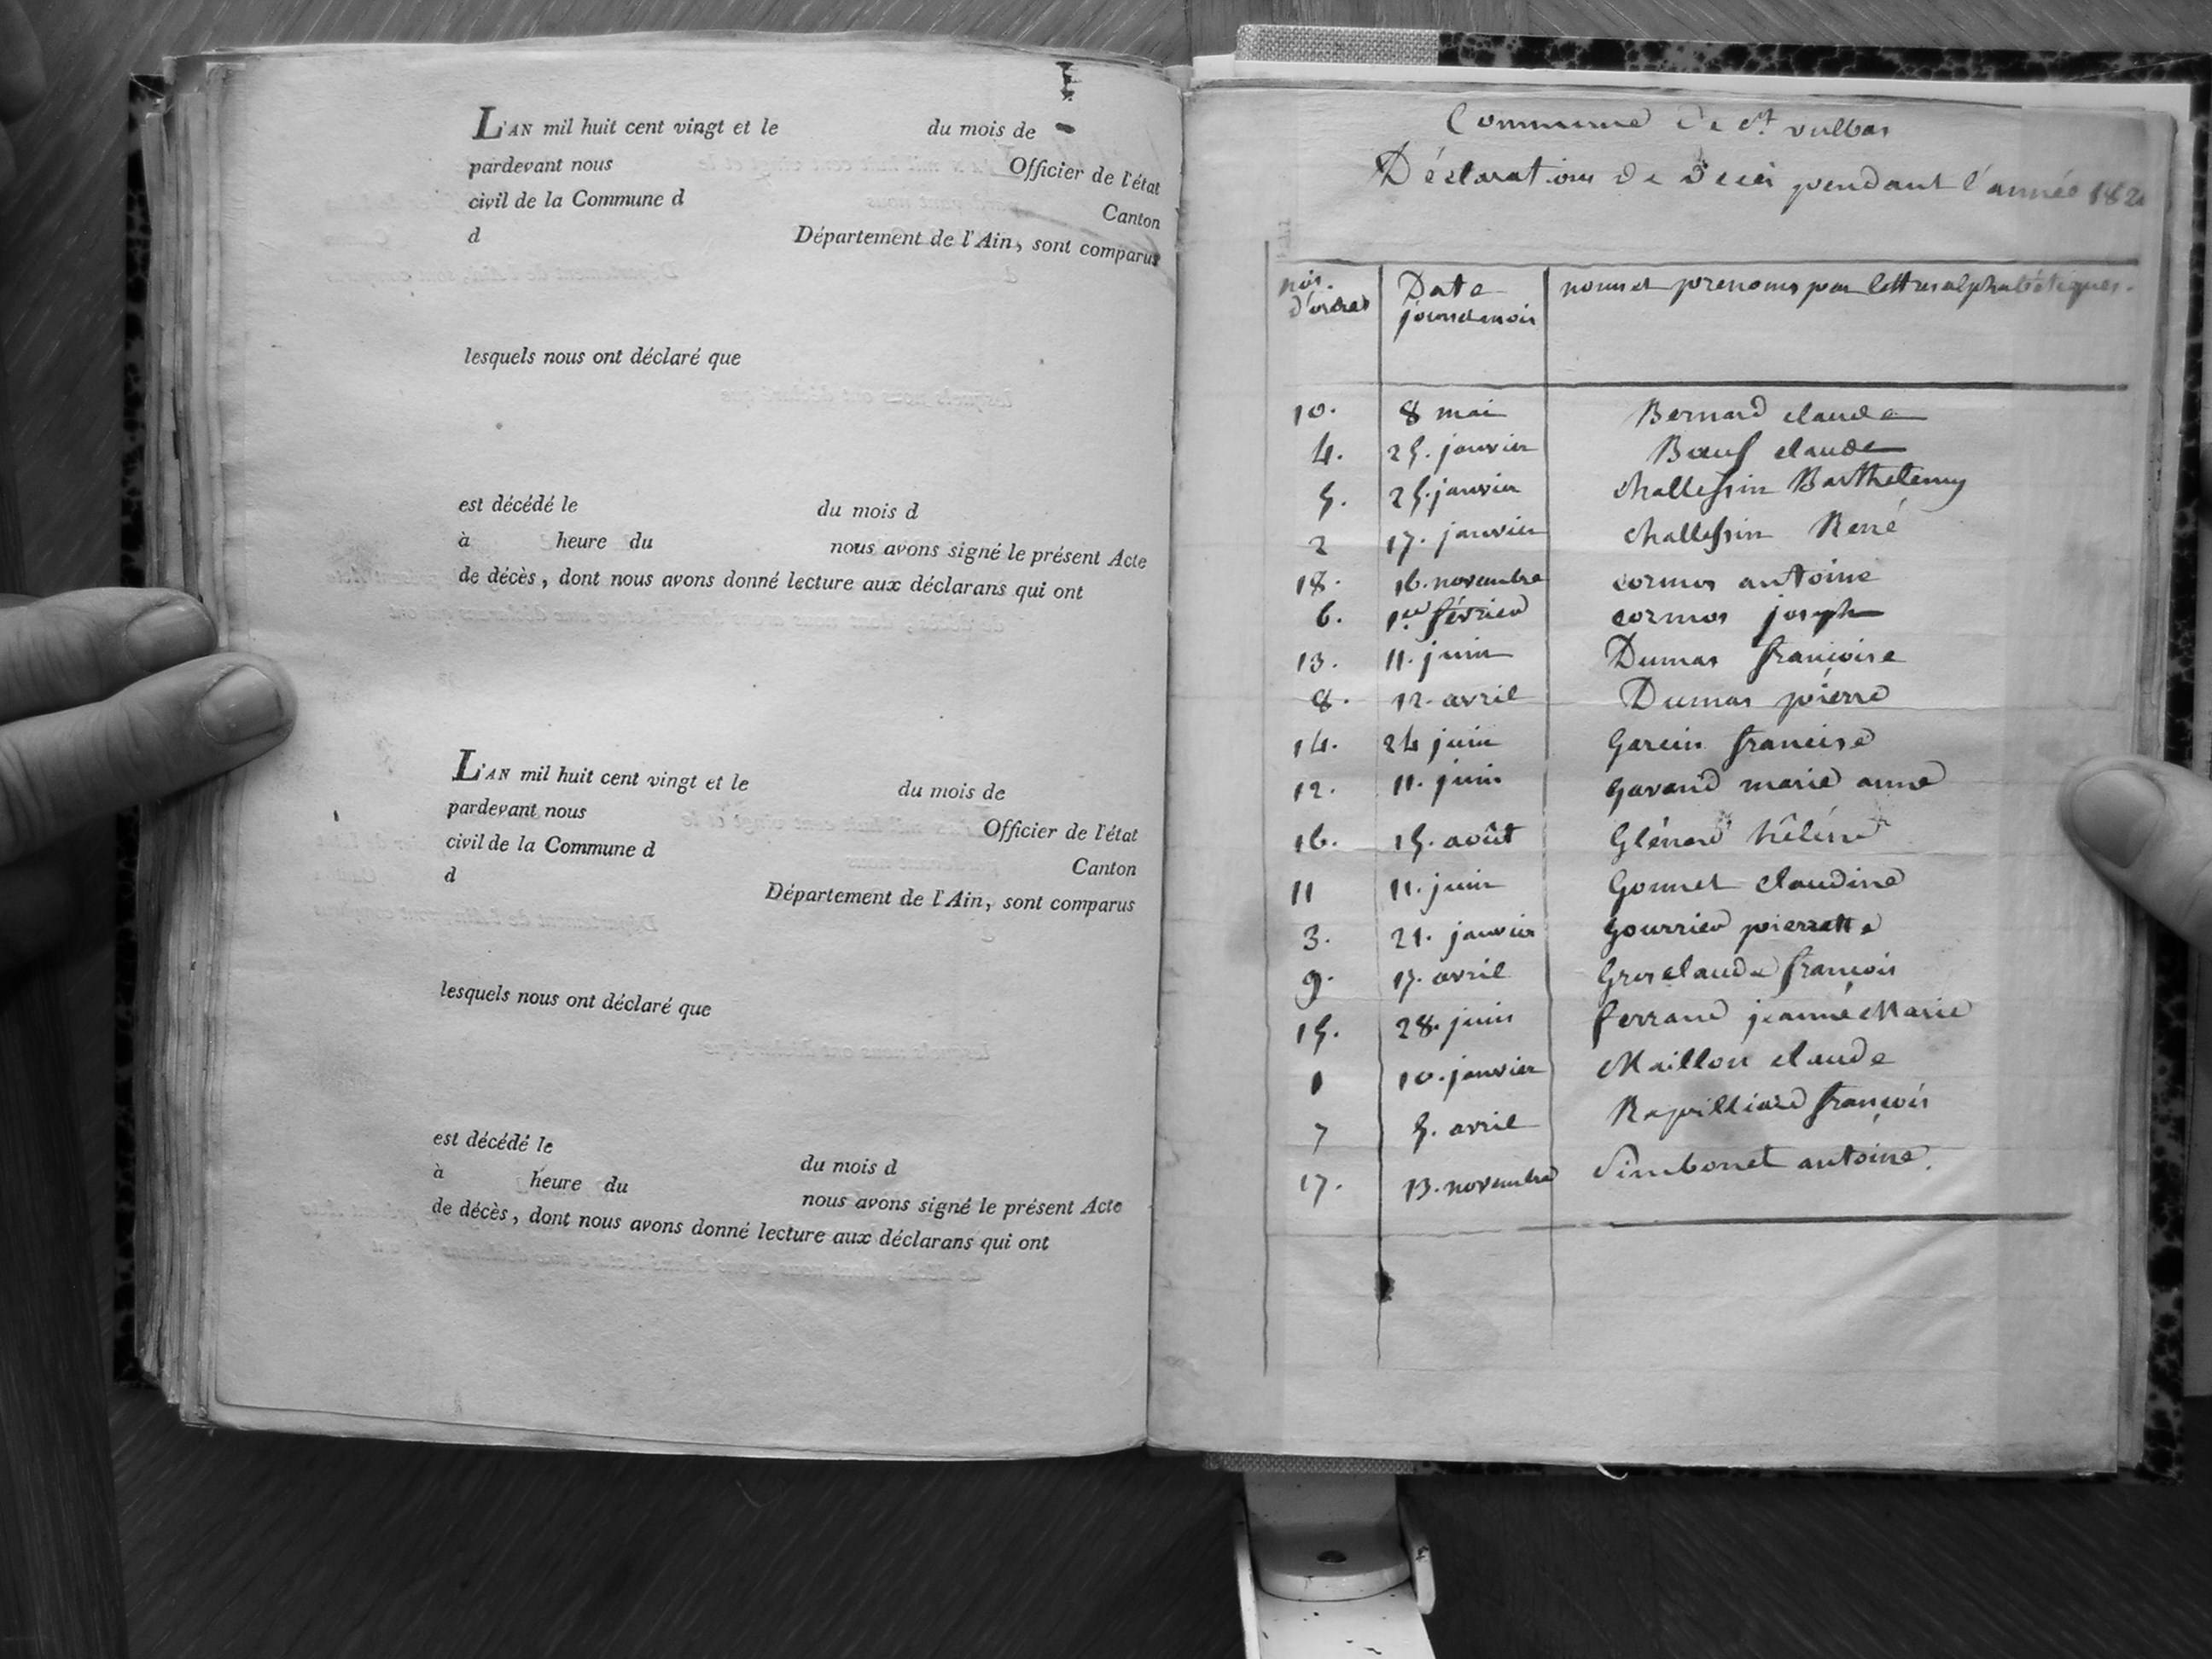 L'AN mil huit cent vingt et le du mois de
pardevant nous Officier de l'état
civil de la Commune d Canton
d Département de l'Ain, sont comparus
lesquels nous ont déclaré que
est décédé le du mois d
à heure du nous avons signé le présent Acte
de décès, dont nous avons donné lecture aux déclarans qui ont
L'AN mil huit cent vingt et le du mois de
pardevant nous Officier de l'état
civil de la Commune d Canton
d Département de l'Ain, sont comparus
lesquels nous ont déclaré que
est décédé le du mois d
à heure du nous avons signé le présent Acte
de décès, dont nous avons donné lecture aux déclarans qui ont
Commune de St vulbas
Déclarations de Decès pendant l'année
nos. Date noms et prenoms par lettres alphabétiques.
d'ordres jours et mois
10. 8 mai Bernard claude
4. 25. janvier Bœuf claude
5. 25. janvier challessin Barthelemy
2 17. janvier challessin René
18. 16. novembre cormos antoine
6. 1er février cormos joseph
13. 11. juin Dumas francoise
8. 12. avril Dumas pierre
14. 24 juin Garcin francise
12. 11. juin Gavand marie anne
16. 15. août Glénard hélène
11 11. juin Gonnet claudine
3. 21. janvier Gourrier pierrette
9. 17. avril Grosclaude francois
15. 28. juin ferrand jeanne Marie
1 10. janvier Maillon claude
7 5. avril Rapilliard francois
17. 13. novembre Simbonet antoine.